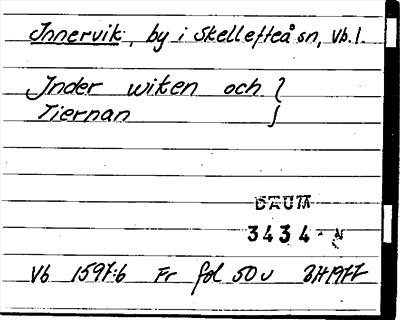 Innervik, by i Skellefteå sn, Vb.l.
Inder wiken och }
Tiernan
DAUM
3434 - N
Vb 1597:6 Fr fol 50v BH 1977